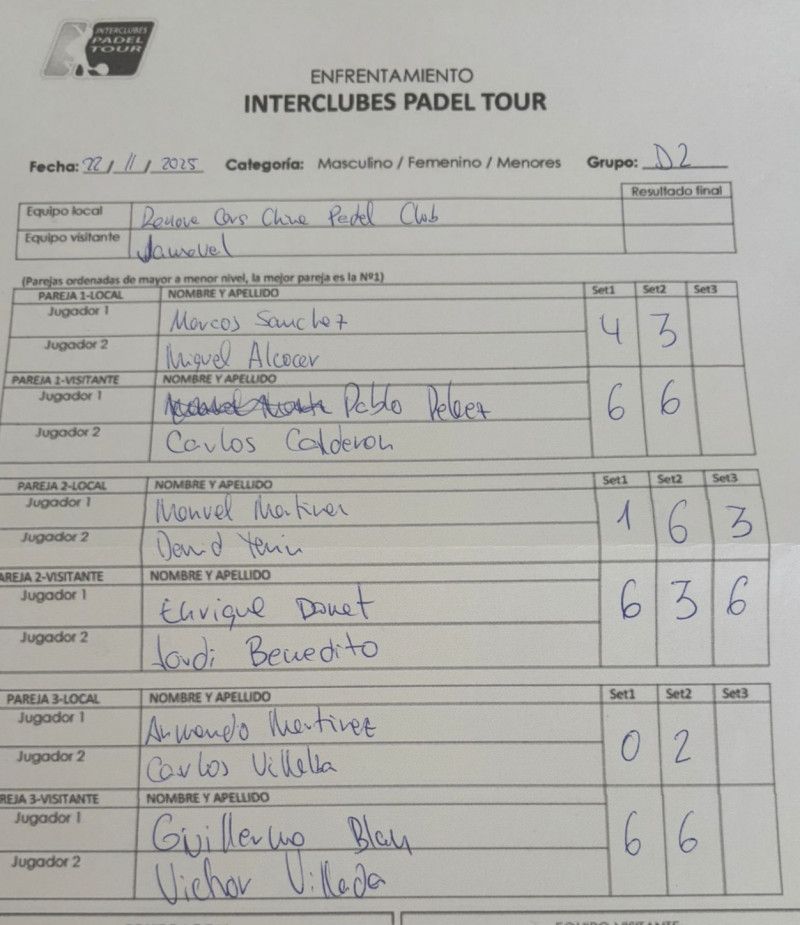 INTERCLUBES
PADEL
TOUR
ENFRENTAMIENTO
INTERCLUBES PADEL TOUR
Fecha: 22 / 11 / 2025 Categoría: Masculino / Femenino / Menores Grupo: D2
Resultado final
Equipo local Renove Cars Chiva Padel Club
Equipo visitante
(Parejas ordenadas de mayor a menor nivel, la mejor pareja es la Nº1)
PAREJA 1-LOCAL NOMBRE Y APELLIDO Set1 Set2 Set3
Jugador 1 Marcos Sanchez 4 3
Jugador 2 Miguel Alcocer
PAREJA 1-VISITANTE NOMBRE Y APELLIDO
Jugador 1 Pablo Pelaez 6 6
Jugador 2 Carlos Calderon
PAREJA 2-LOCAL NOMBRE Y APELLIDO Set1 Set2 Set3
Jugador 1 Manuel Martinez 1 6 3
Jugador 2 David
AREJA 2-VISITANTE NOMBRE Y APELLIDO
Jugador 1 Enrique Donet 6 3 6
Jugador 2 Jordi Benedito
PAREJA 3-LOCAL NOMBRE Y APELLIDO Set1 Set2 Set3
Jugador 1 Armando Martinez 0 2
Jugador 2 Carlos Villalba
REJA 3-VISITANTE NOMBRE Y APELLIDO
Jugador 1 Guillermo Blay 6 6
Jugador 2 Victor Villada